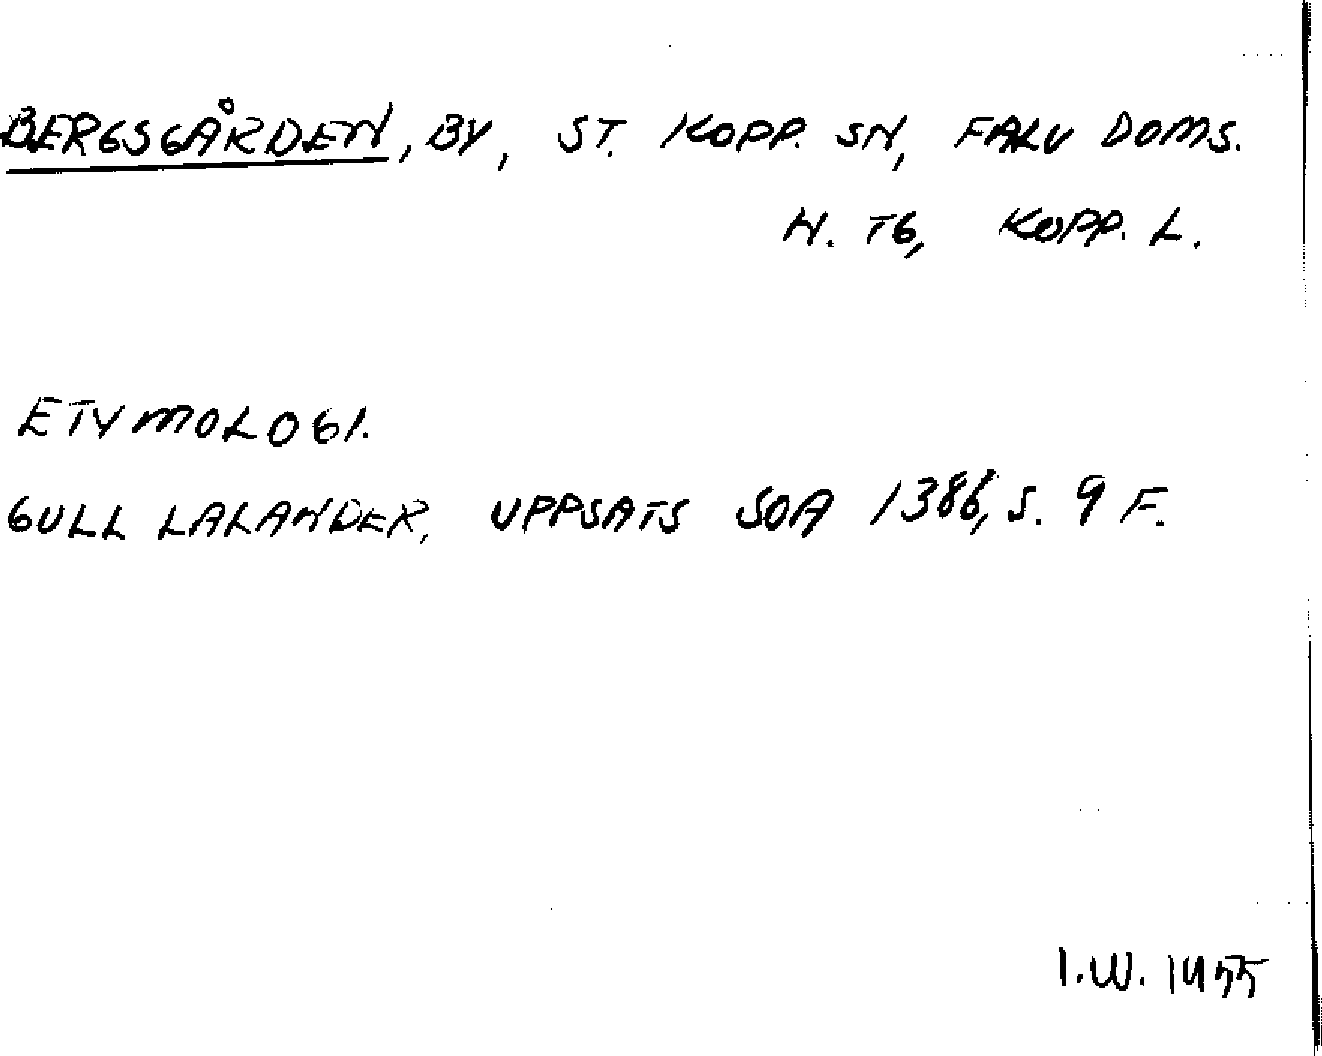 BERGSGÅRDEN, BY, ST. KOPP. SN, FALU DOMS.
N. TG, KOPP. L.
ETYMOLOGI.
GULL LALANDER, UPPSATS SOA 1386, S. 9 F.
I.W. 1955